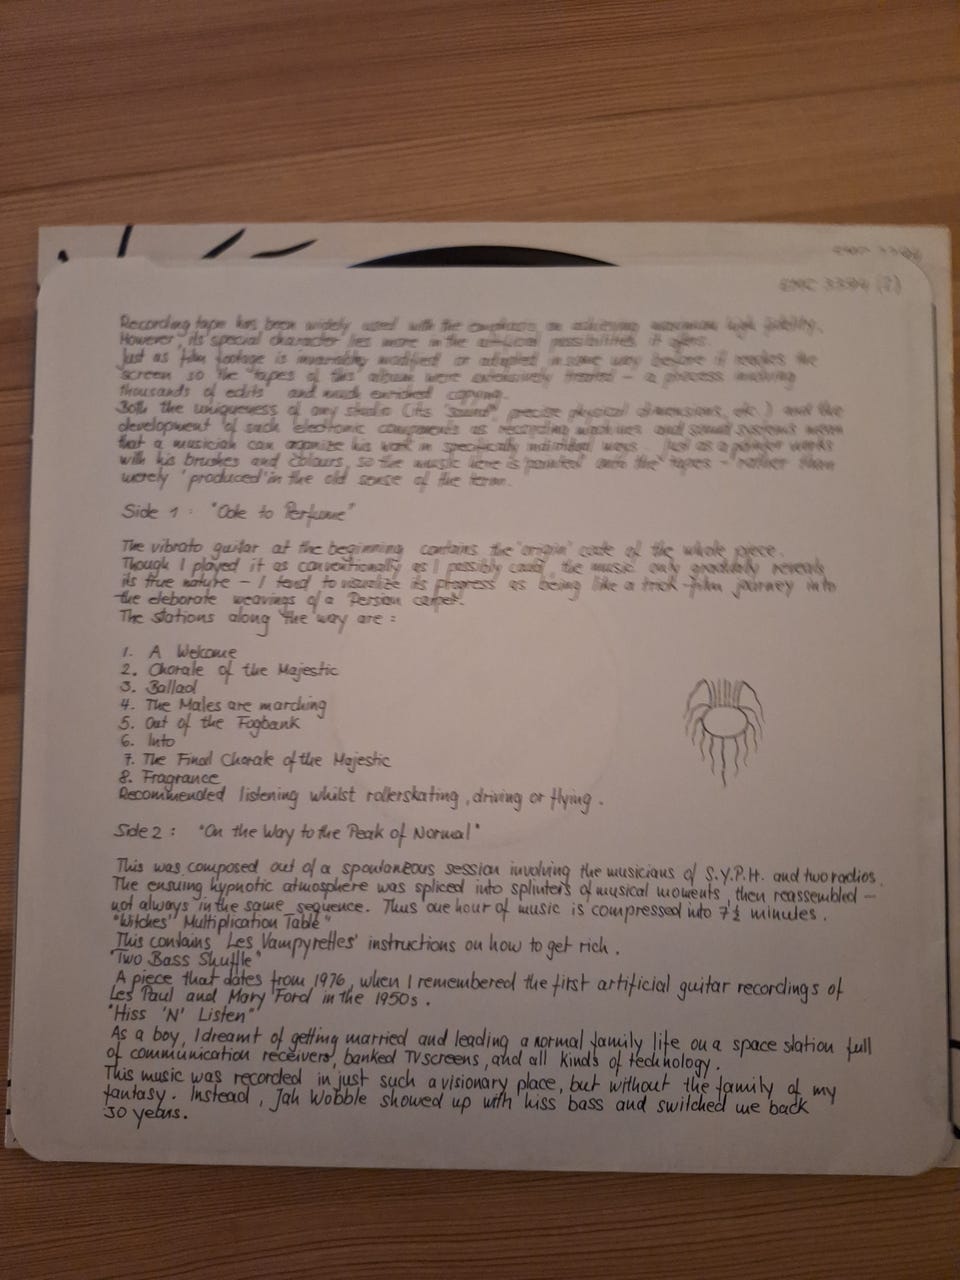 EMC 3394 (2)
Recording tape has been widely used with the emphasis on achieving maximum high fidelity.
However, its special character lies more in the artificial possibilities it offers.
Just as film footage is invariably modified or adapted in some way before it reaches the
screen so the tapes of this album were extensively treated – a process involving
thousands of edits and much enriched copying.
Both the uniqueness of any studio (its "sound", precise physical dimensions, etc.) and the
development of such electronic components as recording machines and sound systems mean
that a musician can organize his work in specifically individual ways. Just as a painter works
with his brushes and colours, so the music here is 'painted' onto the tapes – rather than
merely 'produced' in the old sense of the term.
Side 1: "Ode to Perfume"
The vibrato guitar at the beginning contains the 'origin' code of the whole piece.
Though I played it as conventionally as I possibly could, the music only gradually reveals
its true nature – I tend to visualize its progress as being like a trick-film journey into
the eleborate weavings of a Persian carpet.
The stations along the way are:
1. A Welcome
2. Chorale of the Majestic
3. Ballad
4. The Males are marching
5. Out of the Fogbank
6. Into
7. The Final Chorale of the Majestic
8. Fragrance
Recommended listening whilst rollerskating, driving or flying.
Side 2: "On the Way to the Peak of Normal"
This was composed out of a spontaneous session involving the musicians of S.Y.P.H. and two radios.
The ensuing hypnotic atmosphere was spliced into splinters of musical moments, then reassembled –
not always in the same sequence. Thus one hour of music is compressed into 7½ minutes.
"Witches' Multiplication Table"
This contains 'Les Vampyrettes' instructions on how to get rich.
"Two Bass Shuffle"
A piece that dates from 1976, when I remembered the first artificial guitar recordings of
Les Paul and Mary Ford in the 1950s.
"Hiss 'N' Listen"
As a boy, I dreamt of getting married and leading a normal family life on a space station full
of communication receivers, banked TV screens, and all kinds of technology.
This music was recorded in just such a visionary place, but without the family of my
fantasy. Instead, Jah Wobble showed up with hiss bass and switched me back
30 years.